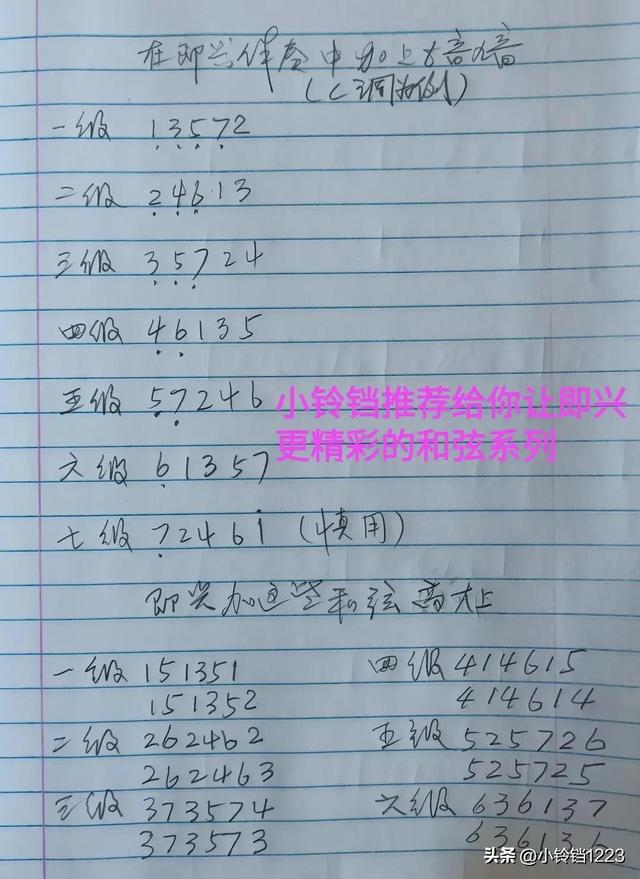 在即兴伴奏中加上七音九音
(C调为例)
一级 13572
二级 24613
三级 35724
四级 46135
五级 57246
小铃铛推荐给你让即兴
更精彩的和弦系列
六级 61357
七级 72461 (慎用)
即兴加这些和弦高大上
一级 151351 四级 414615
151352 414614
二级 262462 五级 525726
262463 525725
三级 373574 六级 636137
373573 636136
头条 @小铃铛1223